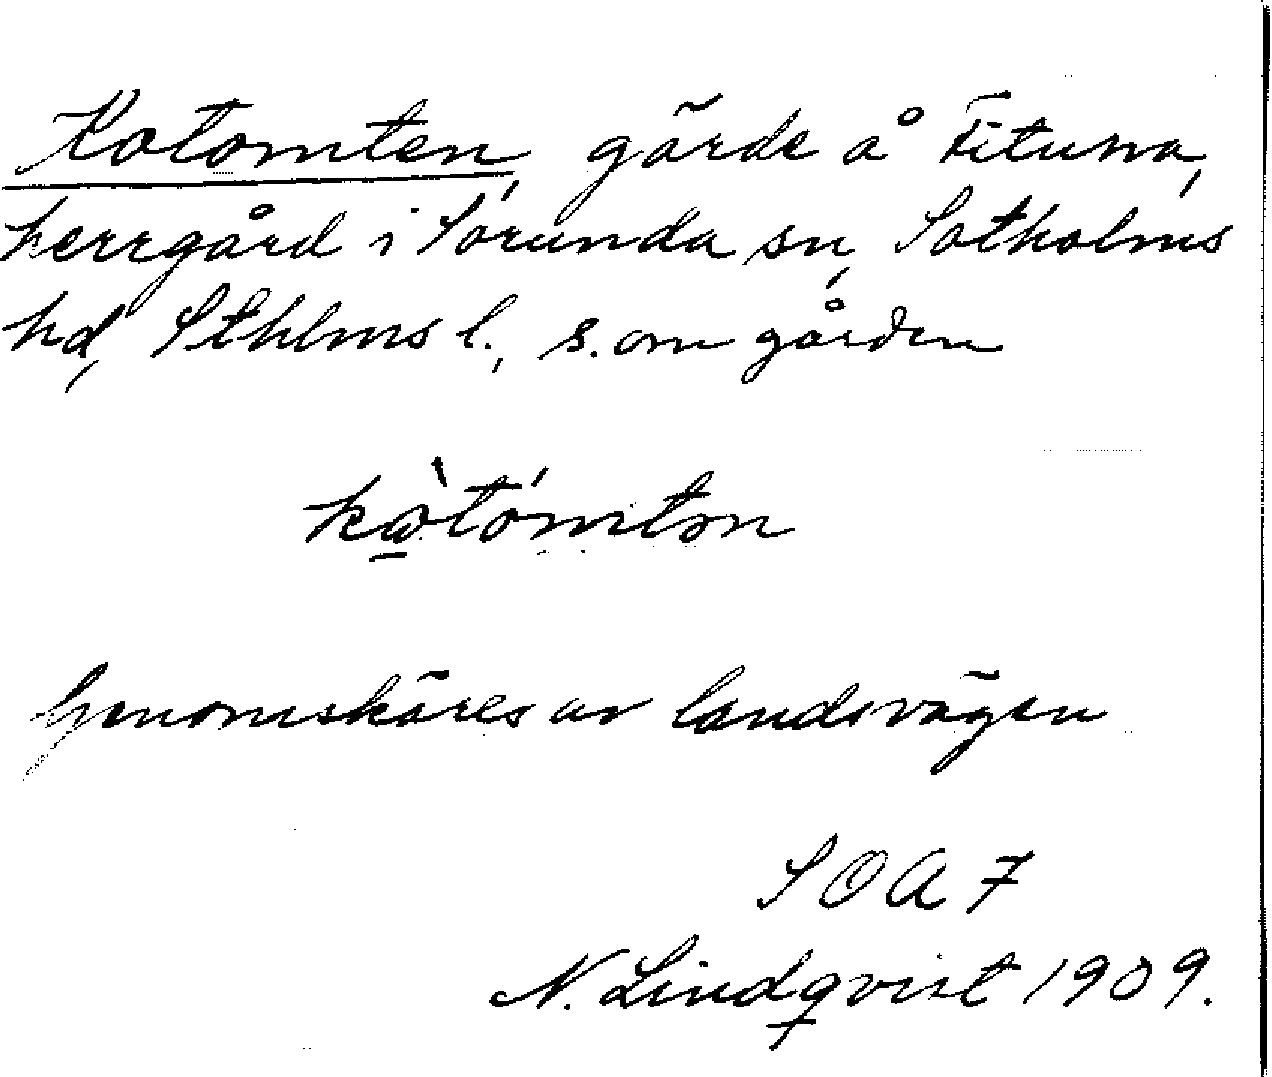 Kotomten, gärde å Fituna,
herrgård i Sorunda sn, Sotholms
hd, Sthlms l., s. om gården
kὼtómtən
Genomskäres av landsvägen
SOA 7
N. Lindqvist 1909.